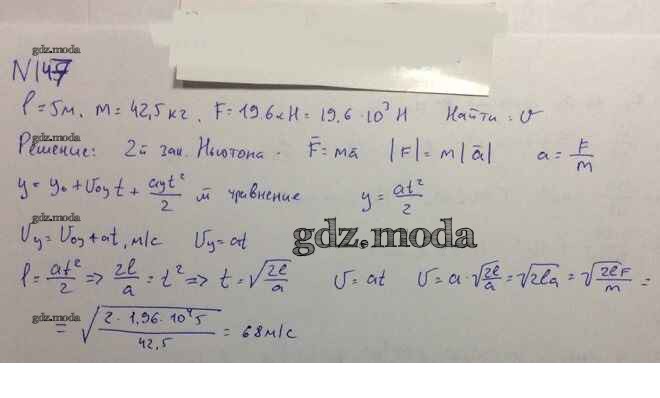 gdz.moda
N147
l = 5м. m = 42,5 кг. F = 19.6 кН = 19,6 · 10³ Н Найти: υ
gdz.moda
Решение: 2й зак. Ньютона - F̄ = mā |F̄| = m|ā| a = F/m
y = y₀ + υ₀y t + ayt²/2 м уравнение y = at²/2
gdz.moda
υy = υ₀y + at, м/с υy = at
gdz.moda
l = at²/2 => 2l/a = t² => t = √(2l/a) υ = at υ = a · √(2l/a) = √(2la) = √(2lF/m) =
gdz.moda
= √(2 · 1,96 · 10⁴ 5/42,5) = 68 м/с